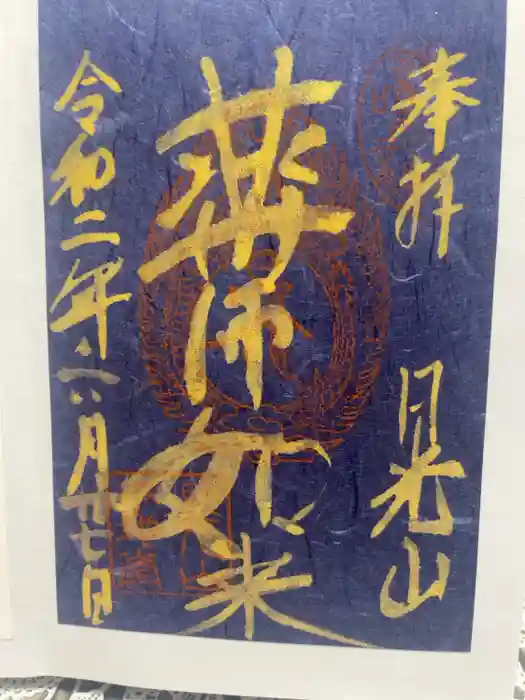 奉拝
日光山
薬師如来
令和二年六月廿七日